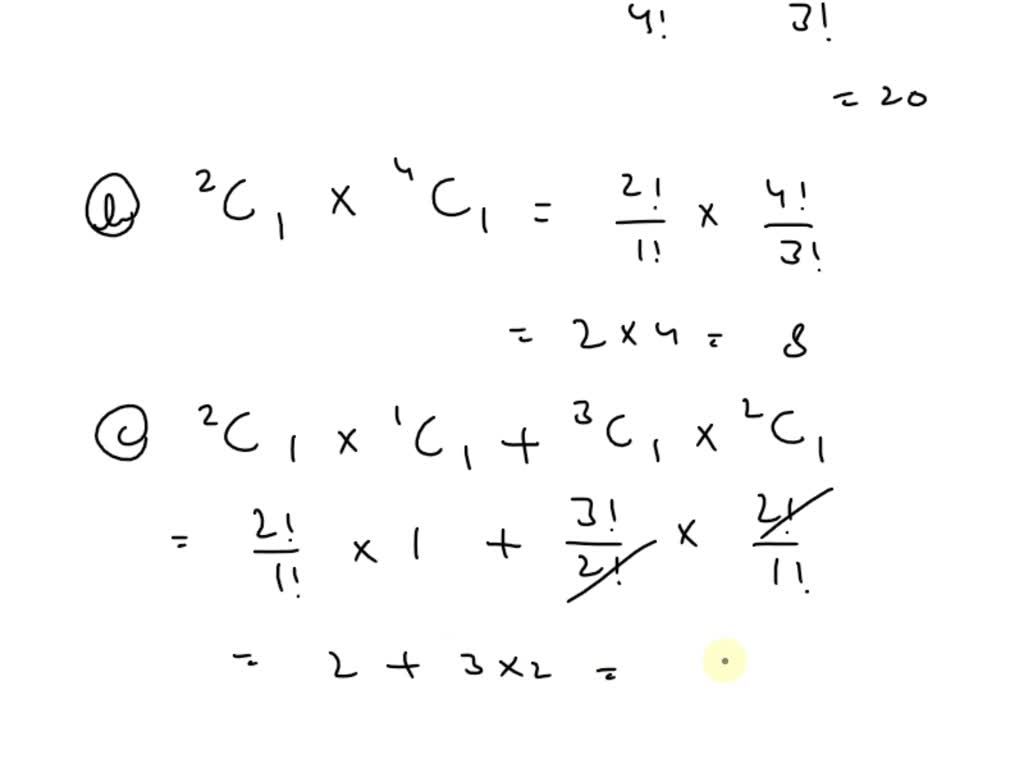 4! 3!
= 20
(b) ²C₁ × ⁴C₁ = 2!/1! × 4!/3!
= 2 × 4 = 8
(c) ²C₁ × ¹C₁ + ³C₁ × ²C₁
= 2!/1! × 1 + 3!/2! × 2!/1!
= 2 + 3 × 2 =